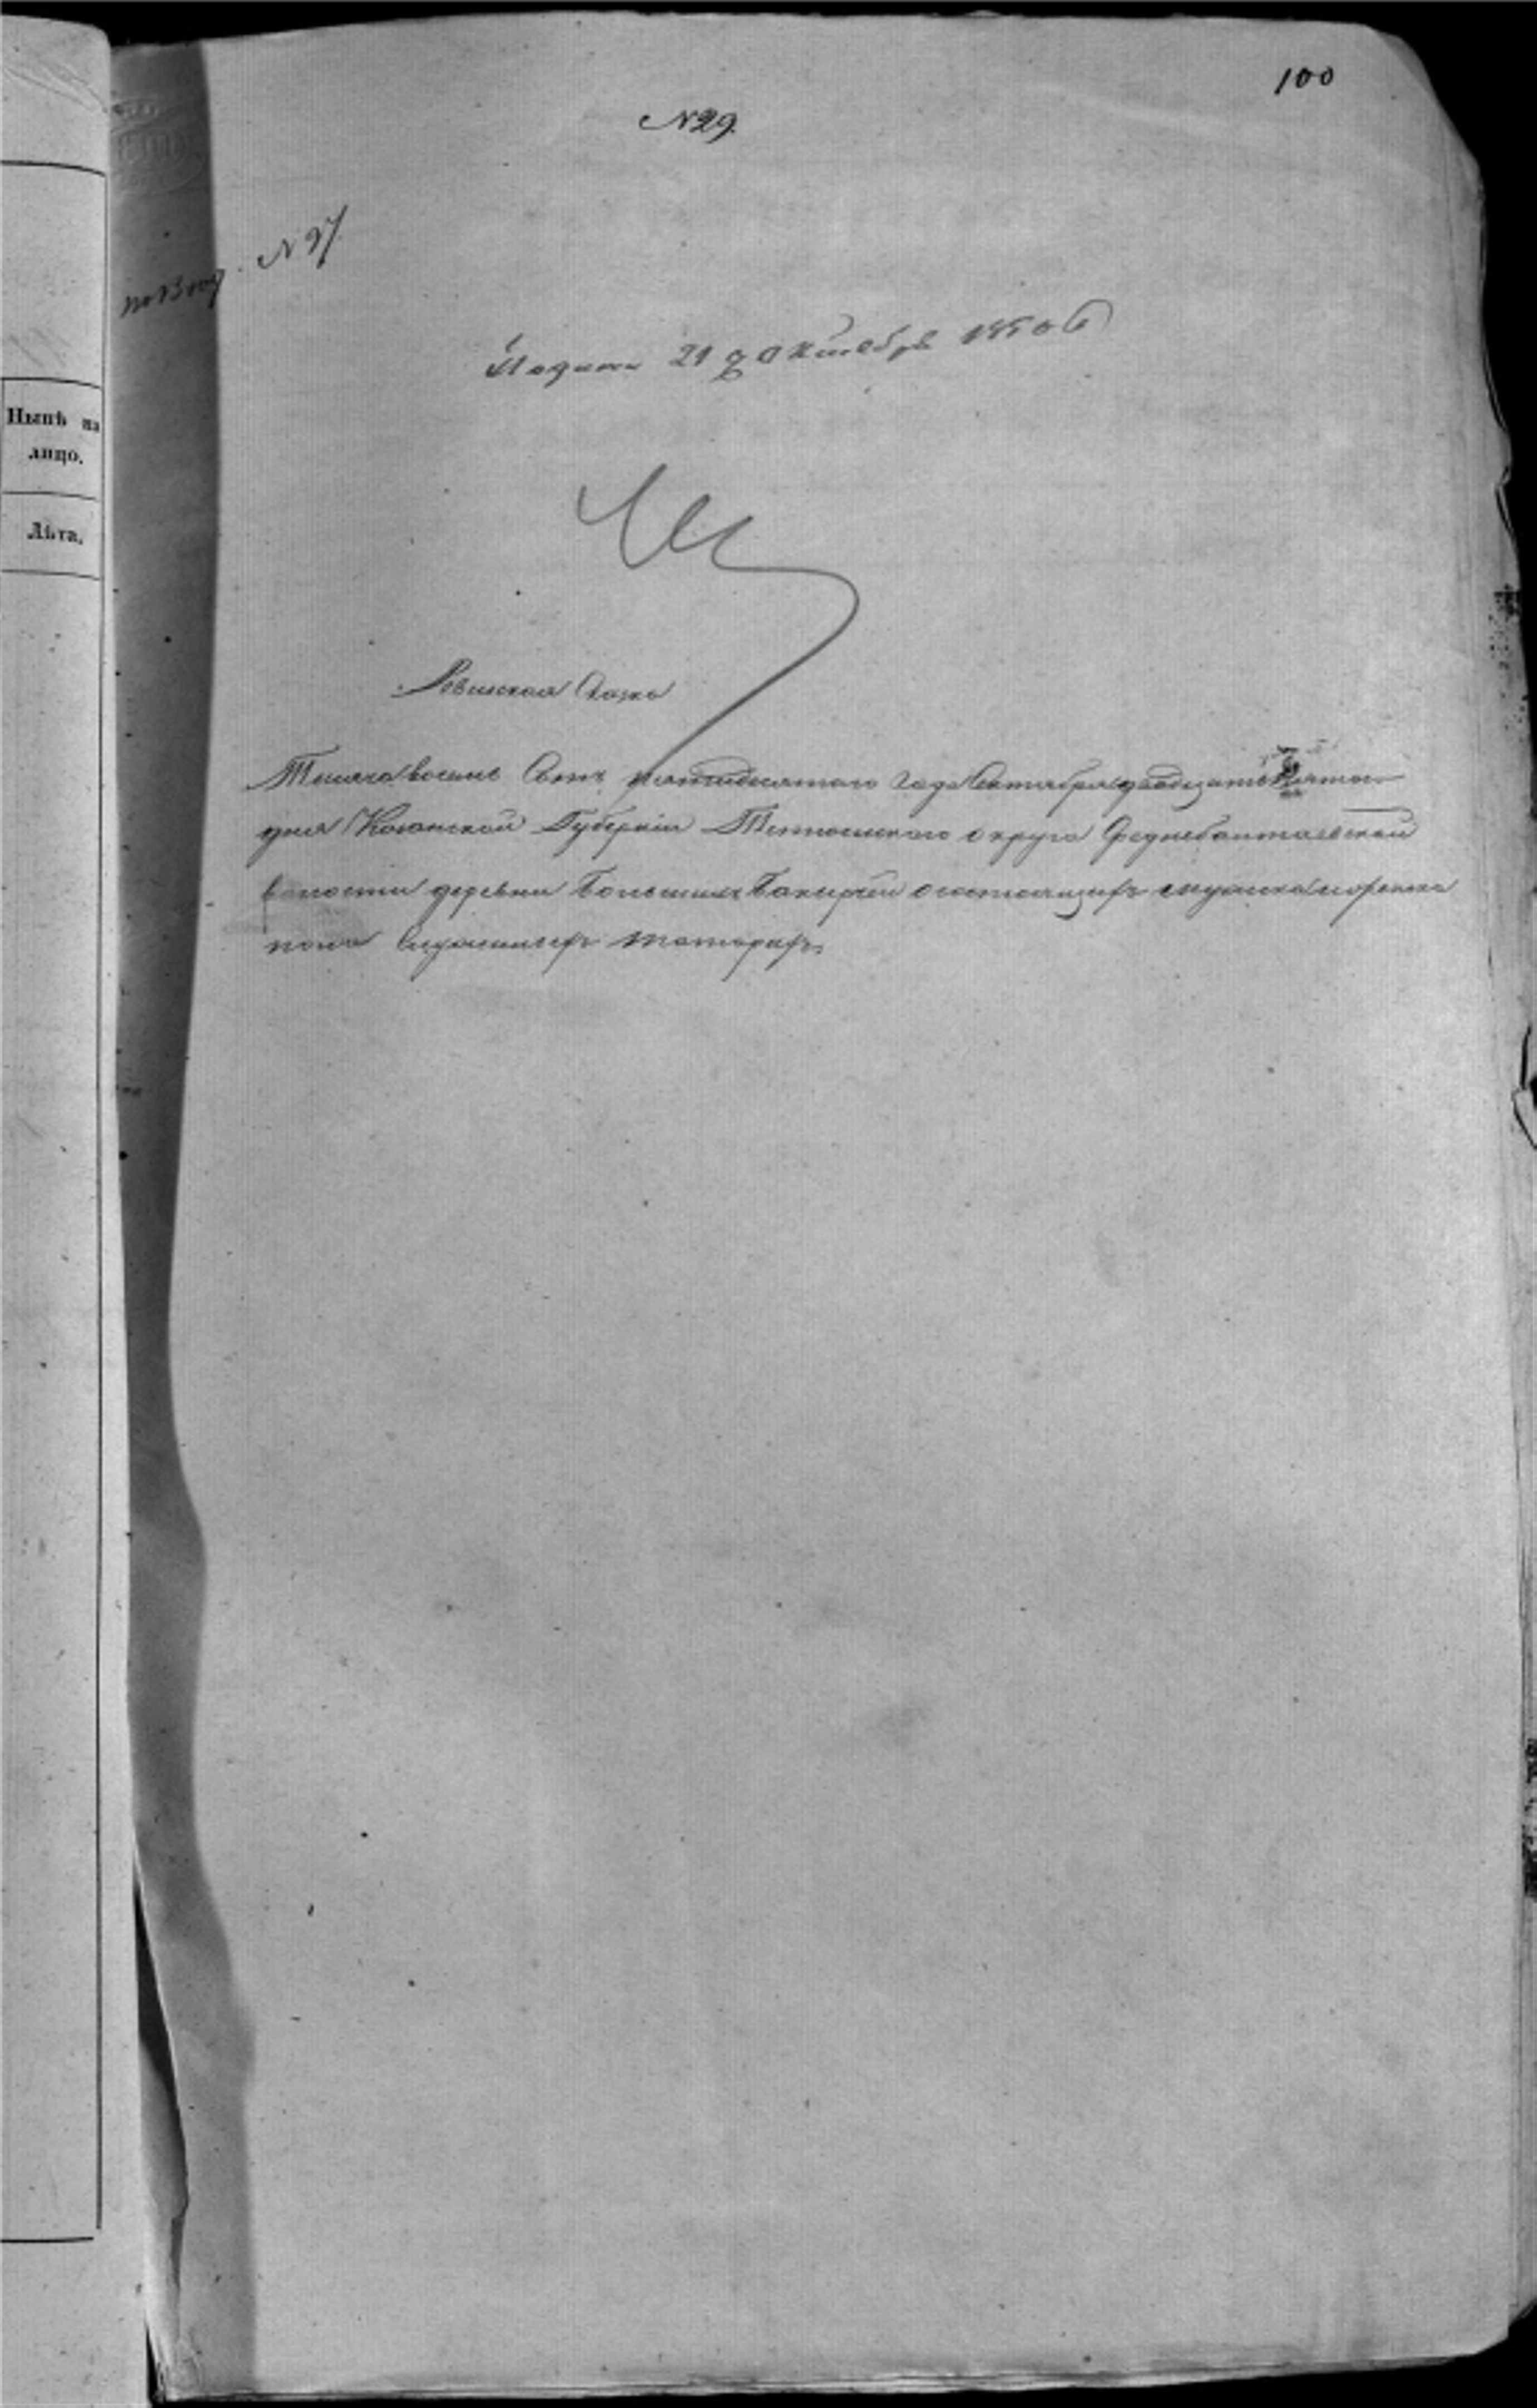 100
№ 29.
№ 97
Подана 21 октября 1850 г
Ревижская Скаска
Тысяча восемь Сотъ пятидесятого года Октября двадцать
дня Казанской Губерніи Тетюшскаго округа Среднебалтаевской
волости деревни Большихъ Бакырчи о состоящихъ мужска и женска
пола Служилыхъ татарахъ
Нынѣ на
лицо.
Лѣта.